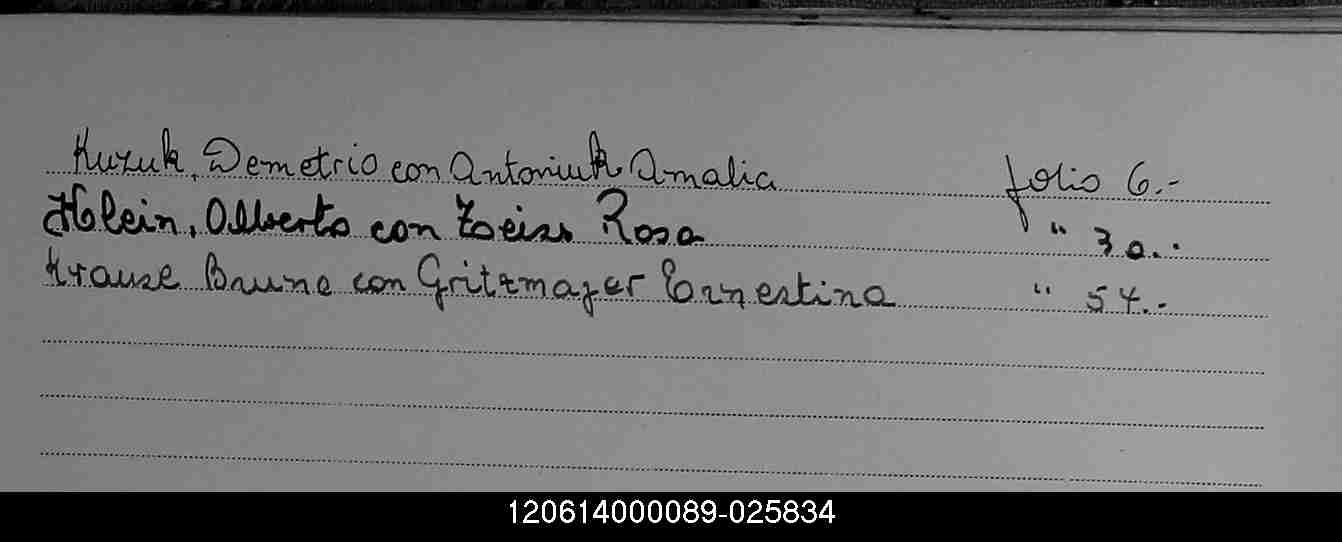 Kuzuk, Demetrio con Antoniuk Amalia folio 6.-
Klein, Alberto con Zeiss Rosa " 30.-
Krause Bruno con Gritzmajer Ernestina " 54.-
120614000089-025834